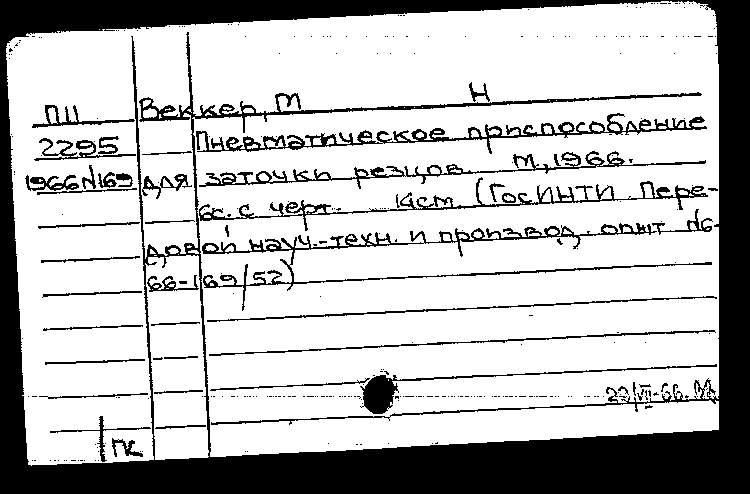 П11 Веккер, М Н
2295 Пневматическое приспособление
1966 N169 для заточки резцов. М., 1966.
6с. с черт. 14см. (ГосИНТИ. Пере-
довой науч.-техн. и производ. опыт N6-
66-169/52)
22/VII-66.
ПК